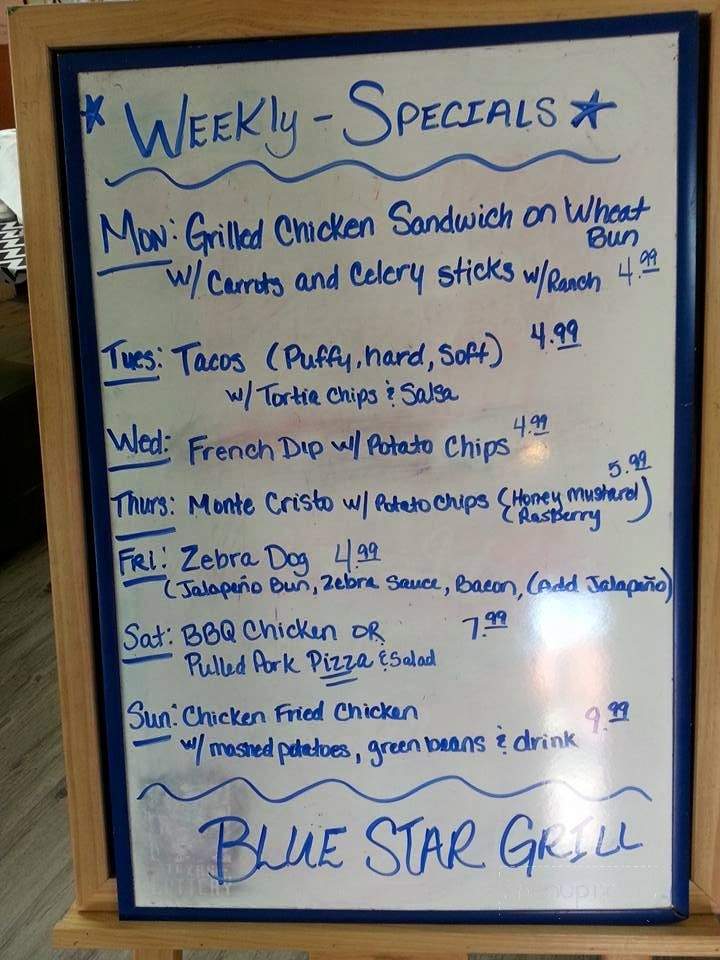 * WEEKLY - SPECIALS ☆
MON: Grilled Chicken Sandwich on Wheat
Bun
w/ Carrots and Celery sticks w/Ranch 4.99
Tues: Tacos (Puffy, hard, Soft) 4.99
w/ Tortia Chips & Salsa
Wed: French Dip w/ Potato Chips 4.99
5.99
Thurs: Monte Cristo w/ Potato Chips (Honey Mustard)
(Rasberry
FRI: Zebra Dog 4.99
(Jalapeño Bun, Zebra Sauce, Bacon, (Add Jalapeño)
Sat: BBQ Chicken OR 7.99
Pulled Pork Pizza & Salad
Sun: Chicken Fried Chicken 9.99
w/ mashed potatoes, green beans & drink
BLUE STAR GRILL